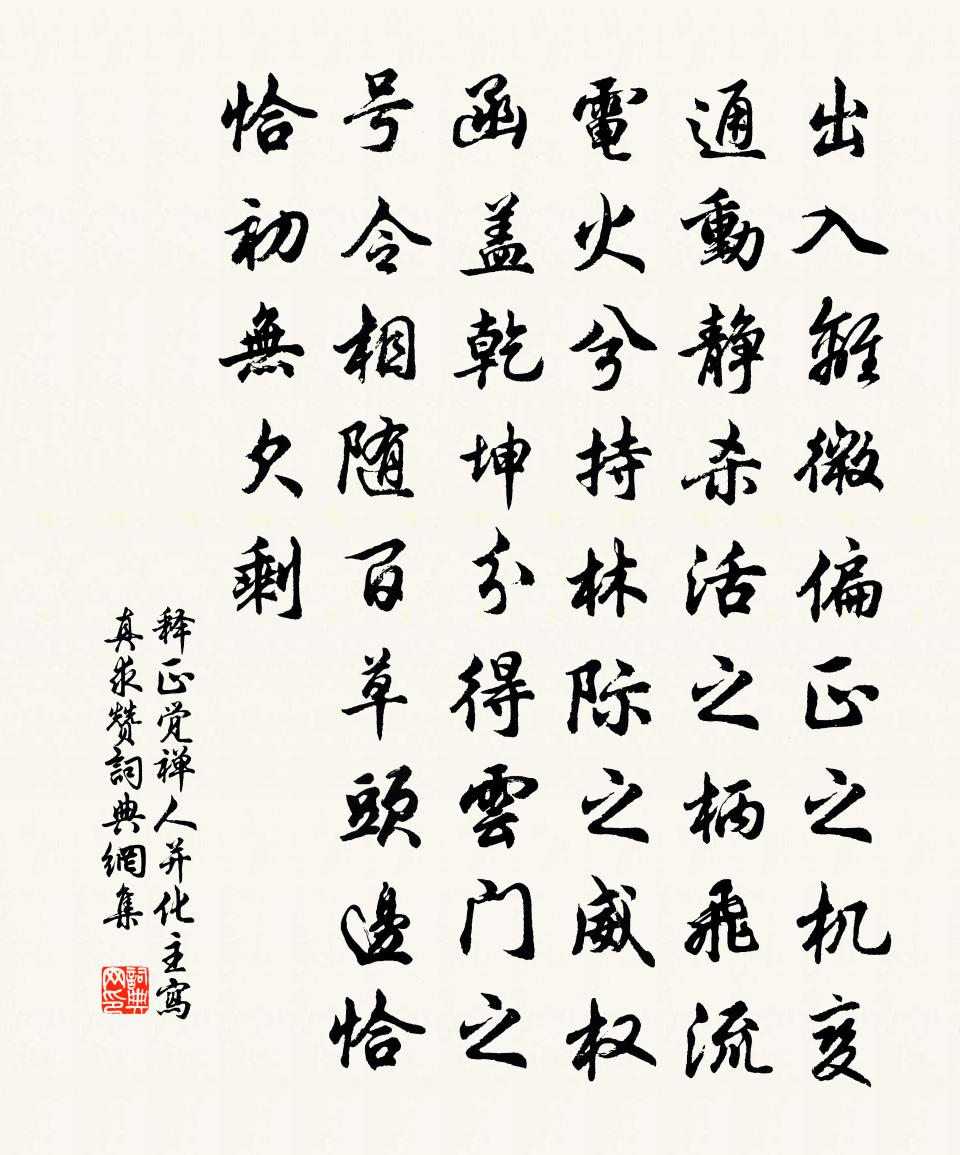 出入離微偏正之机变
通動静杀活之柄飛流
電火兮持林际之威权
函盖乾坤分得雲门之
号令相随百草頭邊恰
恰初無欠剩
释正觉禅人并化主寫
真求赞詞典網集
詞典网印